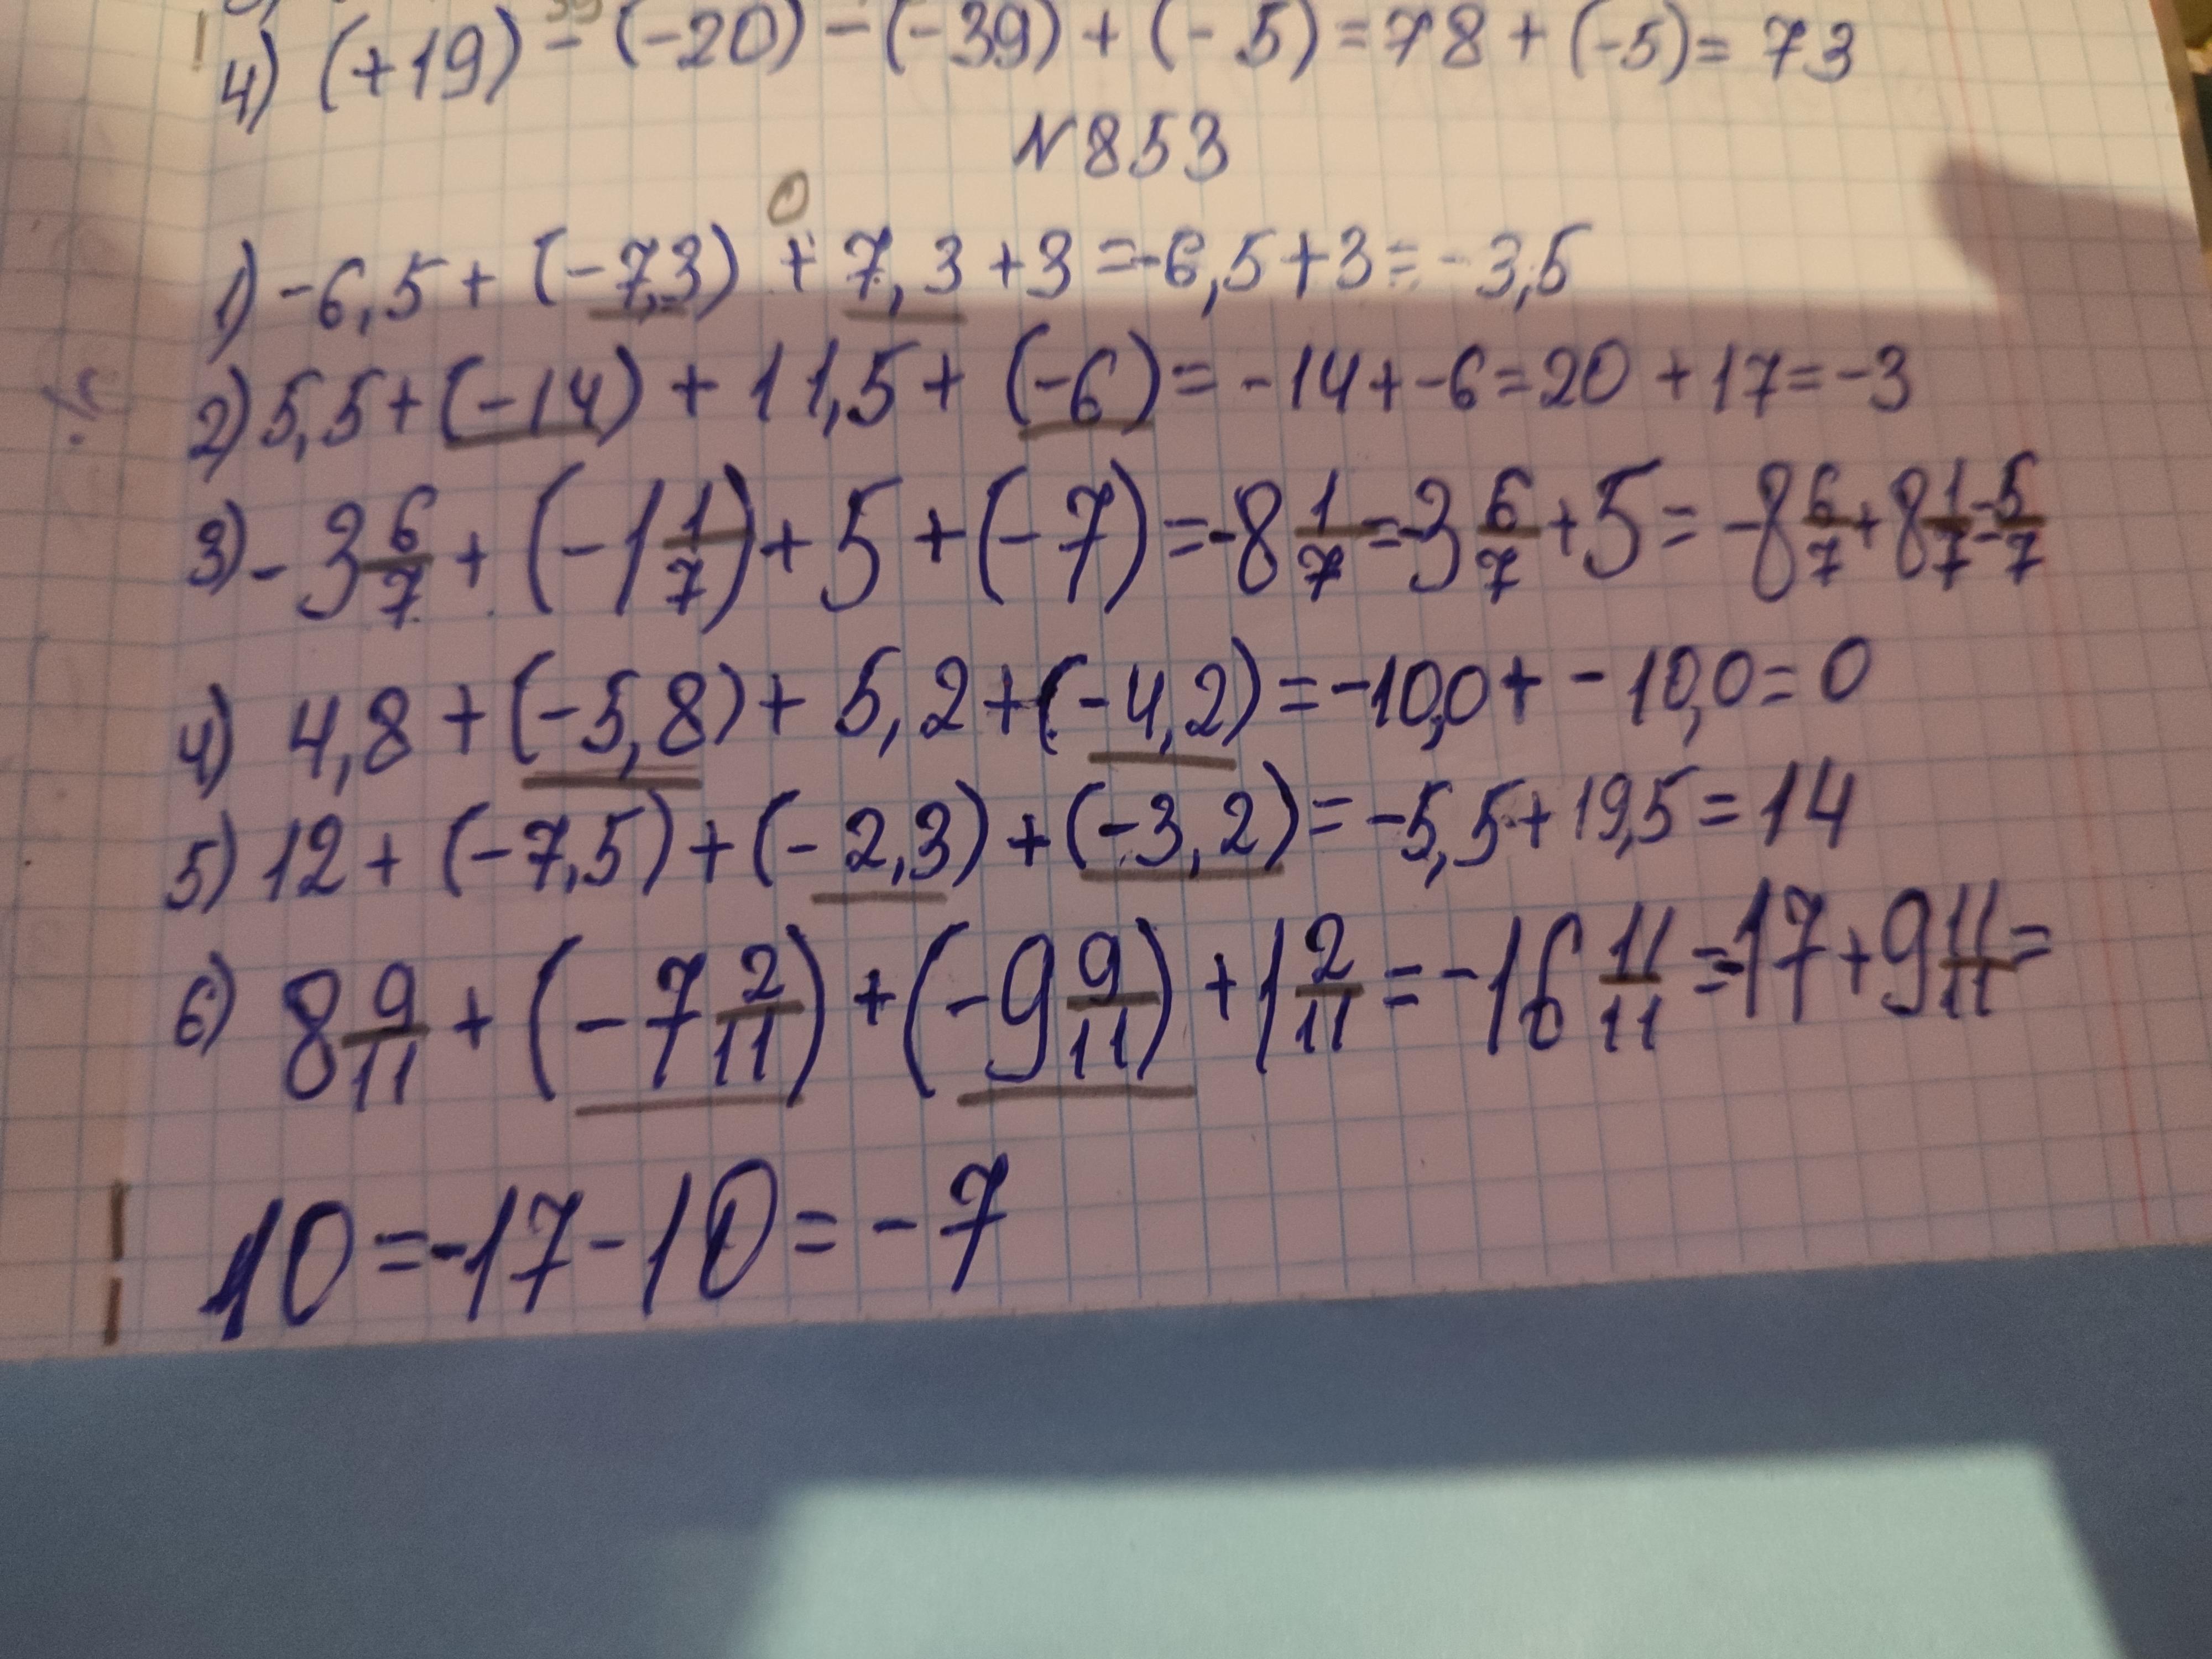 4) (+19) - (-20) - (-39) + (-5) = 78 + (-5) = 73
N 853
0
1) -6,5 + (-7,3) + 7,3 + 3 = -6,5 + 3 = -3,5
2) 5,5 + (-14) + 11,5 + (-6) = -14 + -6 = 20 + 17 = -3
3) -3 6/7 + (-1 1/7) + 5 + (-7) = -8 1/7 = -3 6/7 + 5 = -8 6/7 + 8 1/7 = 5/7
4) 4,8 + (-5,8) + 5,2 + (-4,2) = -10,0 + -10,0 = 0
5) 12 + (-7,5) + (-2,3) + (-3,2) = -5,5 + 19,5 = 14
6) 8 9/11 + (-7 2/11) + (-9 9/11) + 1 2/11 = -16 11/11 = -17 + 9 11/11 =
10 = -17 - 10 = -7